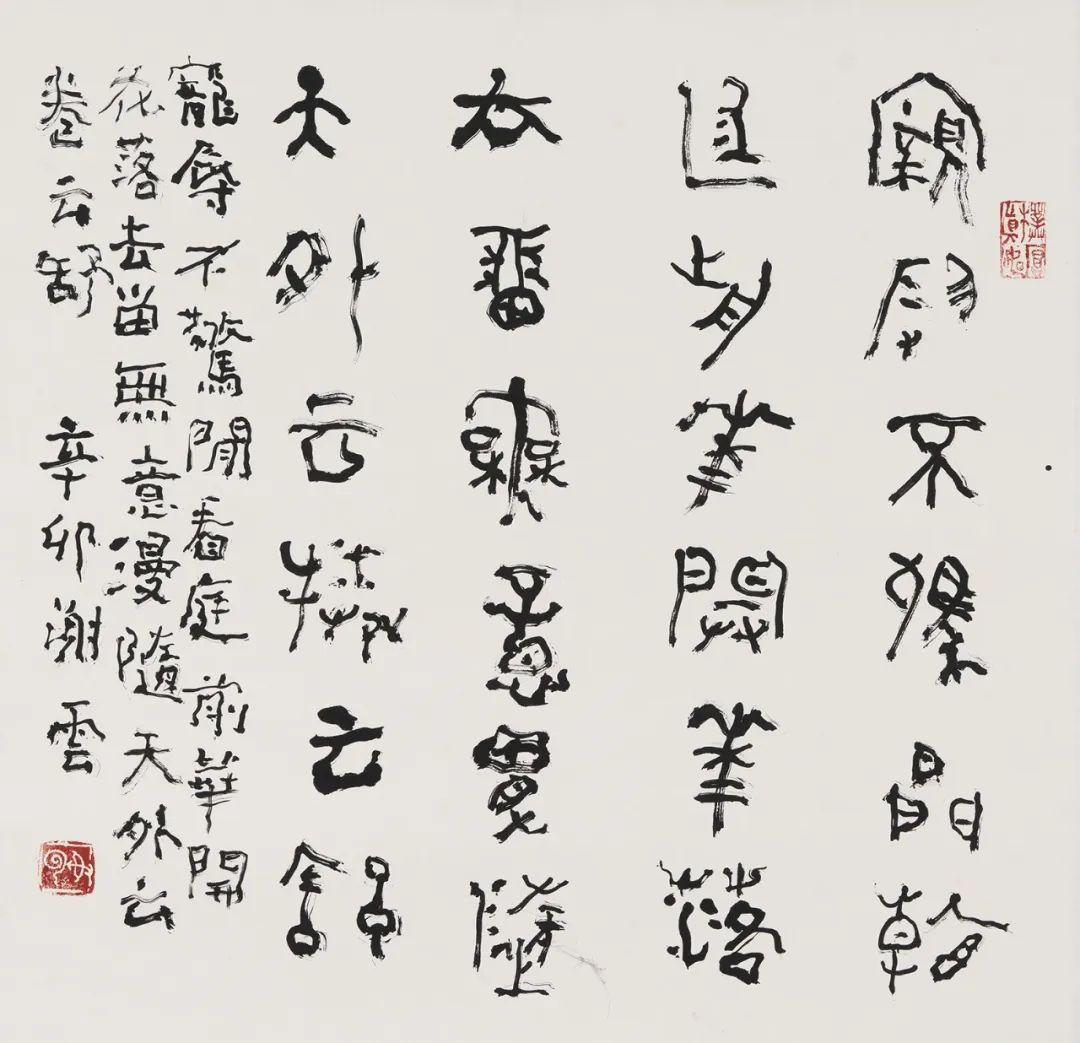 寵辱不驚閒看
庭前華開華落
去留無意漫隨
天外云捲云舒
寵辱不驚閒看庭前華開
花落去留無意漫隨天外云
卷云舒 辛卯謝雲